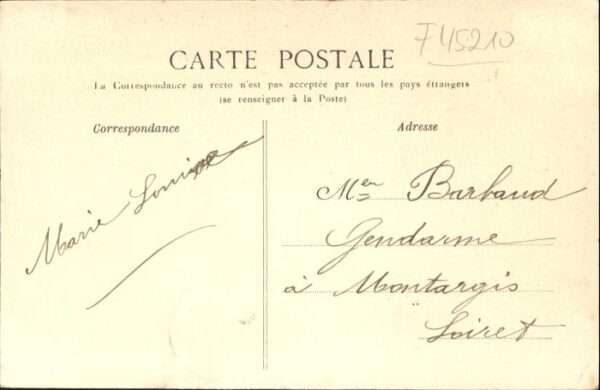 F45210
CARTE POSTALE
La Correspondance au recto n'est pas acceptée par tous les pays étrangers
(se renseigner à la Poste)
Correspondance
Adresse
Marie Louise
Mer Barbaud
Gendarme
à Montargis
Loiret